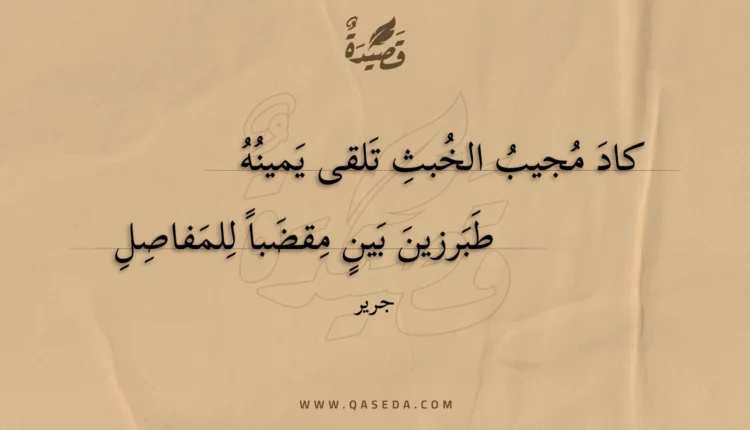 قَصِيْدَةٌ
كادَ مُجيبُ الخُبثِ تَلقى يَمينُهُ
طَبَرزينَ بَينٍ مِقضَباً لِلمَفاصِلِ
جرير
WWW.QASEDA.COM